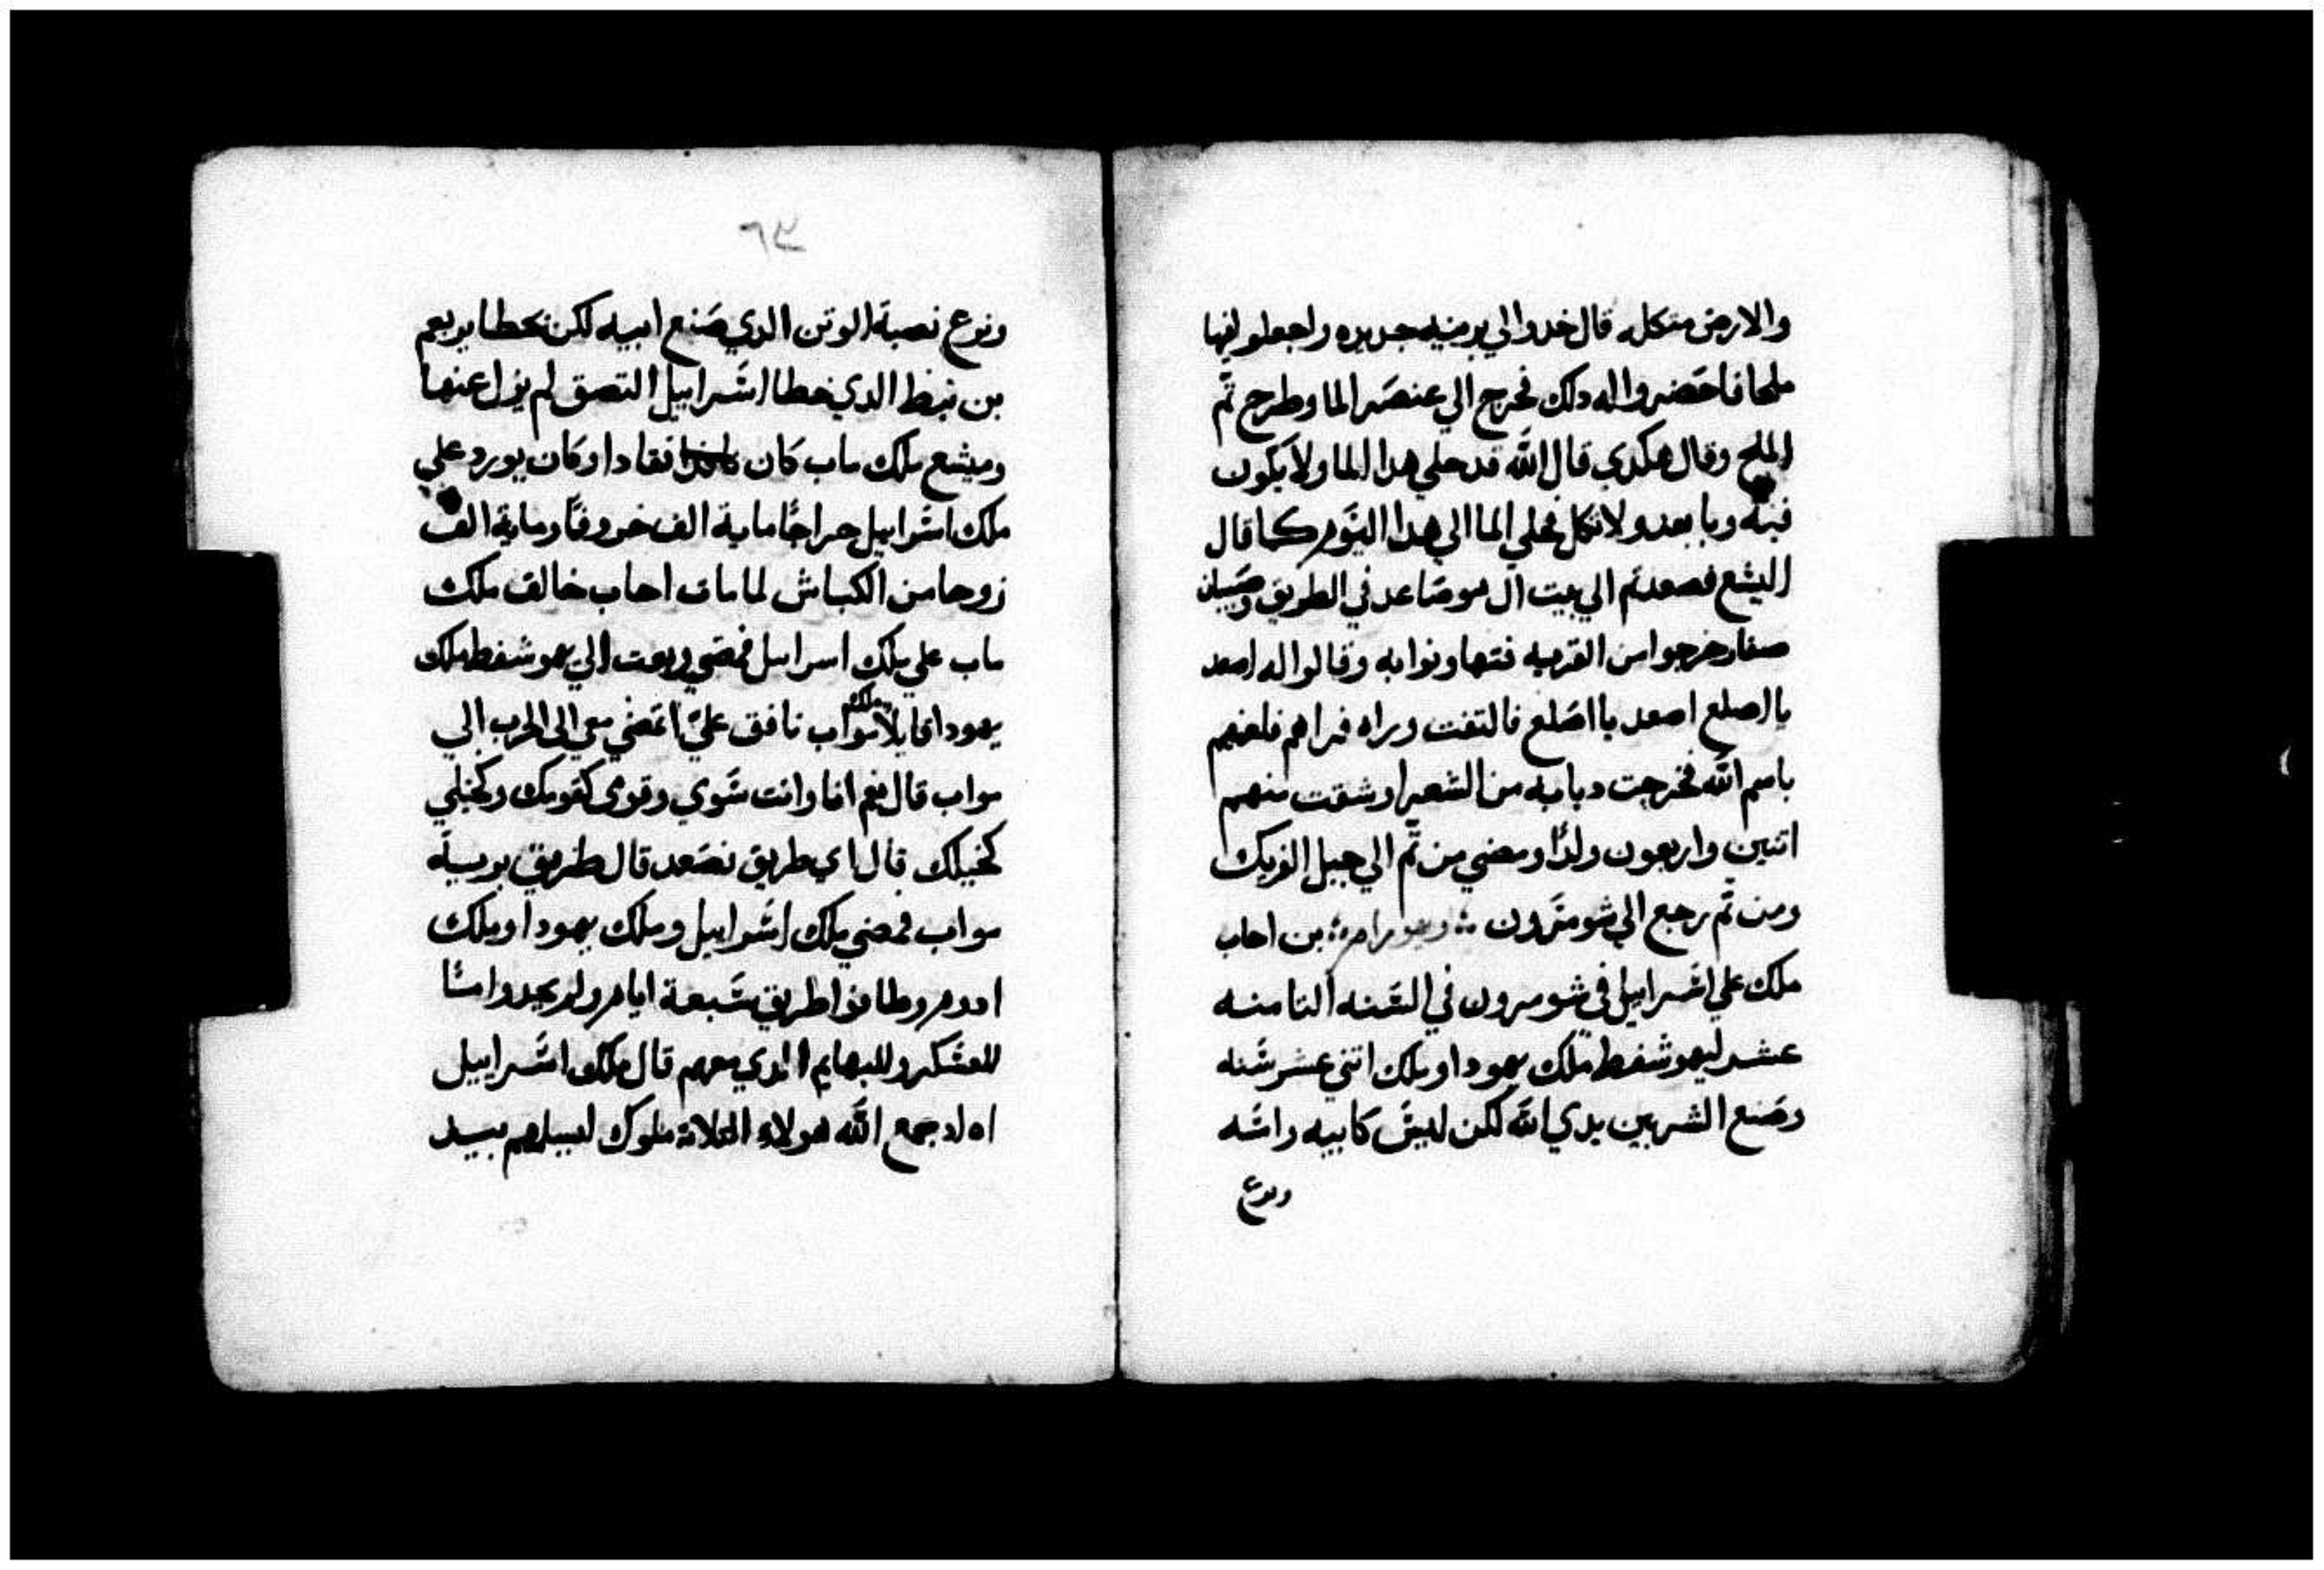 والارض متكله قال خدوا لي برنيه جديده واجعلو فيها
ملحا فاحضروا اله دلك فخرج الي عنصر الما وطرح تم
الملح وقال هكدي قال الله قد حلي هدا الما ولا يكون
فيه وبا بعد ولا تكل فحلي الما الي هدا اليوم كما قال
اليشع فصعد تم الي بيت ال هو صاعد في الطريق وصبيان
صغار خرجوا من القريه فتهاونوا به وقالوا له اصعد
يا اصلع اصعد يا اصلع فالتفت وراه فراهم فلعنهم
باسم الله فخرجت دبابه من الشعرا وشقت منهم
اتنين واربعون ولدًا ومضي من تم الي جبل الفريك
ومن تم رجع الي شومرون ويهورام بن احاب
ملك علي اسرابيل في شومرون في السنه التامنه
عشر ليهوشفط ملك يهودا وملك اتني عشر سنه
وصنع الشر بين يدي الله لكن ليس كابيه وامه
ونوع
٦٣
ونوع نصبة الوتن الدي صنع ابيه لكن بخطا يربعم
بن نبط الدي خطا اسرابيل التصق لم يزل عنها
وميشع ملك ماب كان نقادا وكان يورد علي
ملك اسرابيل خراجًا ماية الف خروفًا وماية الف
زوجا من الكباش لما مات احاب خالف ملك
ماب علي ملك اسرابيل فمضي وبعت الي يهوشفط ملك
يهودا قايلا ملك مواب نافق عليّ اتمضي معي الي الحرب الي
مواب قال نعم انا وانت سوي وقومي كقومك وخيلي
كخيلك قال اي طريق نصعد قال طريق برية
مواب فمضي ملك اسرابيل وملك يهودا وملك
ادوم وطافوا طريق سبعة ايام ولم يجدوا مآا
للعسكر وللبهايم الدي معهم قال ملك اسرابيل
اه لد جمع الله هولاء التلاتة ملوك ليسلمهم بيد